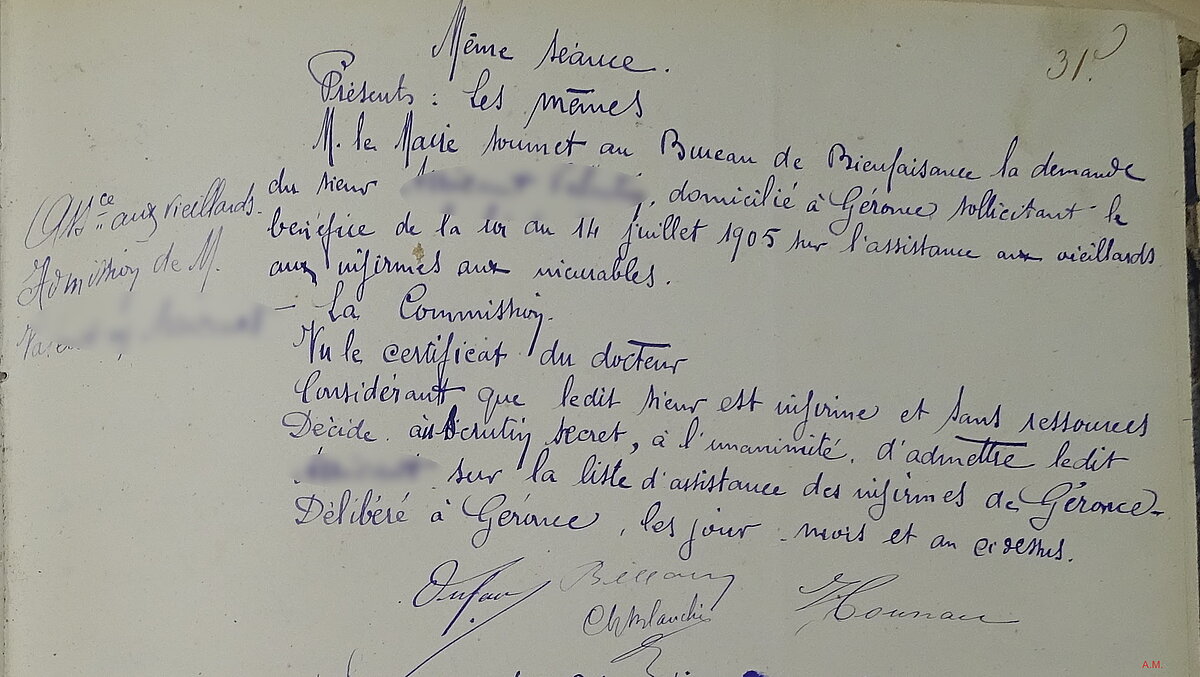 31.
Même séance.
Présents : Les mêmes
M. le Maire soumet au Bureau de Bienfaisance la demande
du sieur , domicilié à Géronce sollicitant le
bénéfice de la loi du 14 juillet 1905 sur l'assistance aux vieillards
aux infirmes aux incurables.
Assce aux vieillards.
Admission de M.
— La Commission.
Vu le certificat du docteur
Considérant que ledit sieur est infirme et sans ressources
Décide au scrutin secret, à l'unanimité, d'admettre ledit
sur la liste d'assistance des infirmes de Géronce-
Délibéré à Géronce, les jour mois et an ci dessus.
A.M.